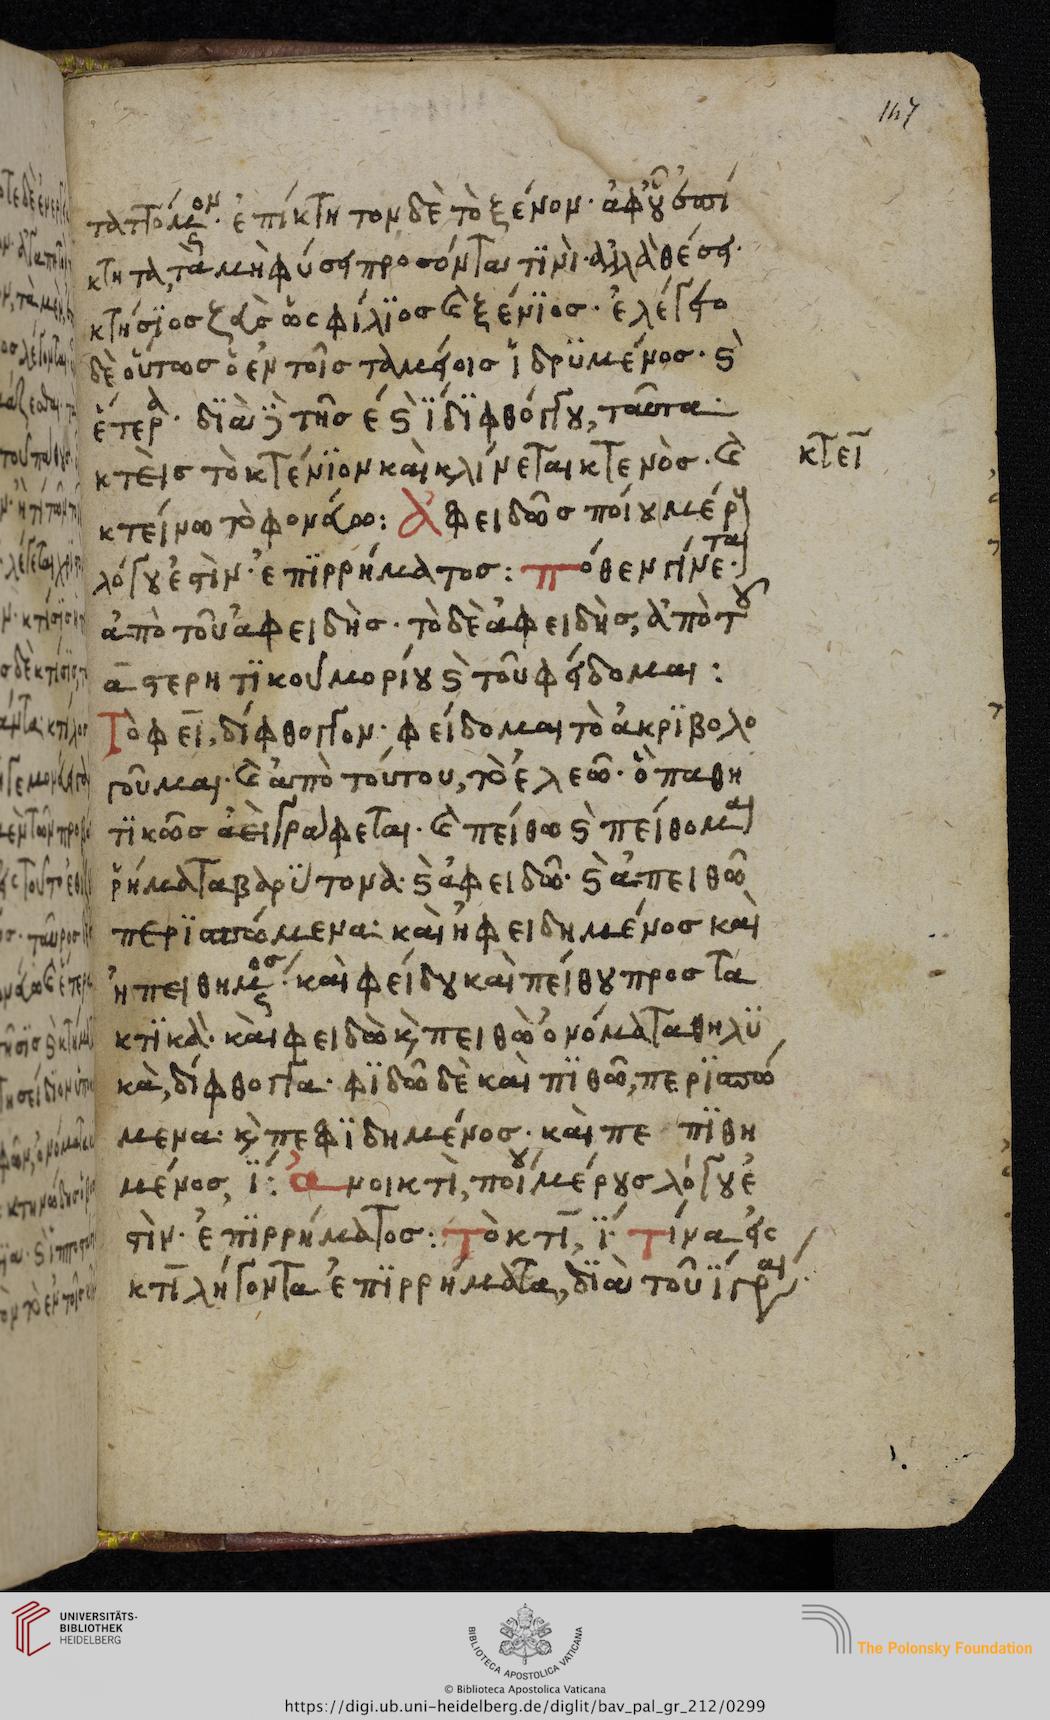 147
τατττόμενον· ἐπίκτητον δὲ τὸ ξένον· ἀφ' οὗ ἐπί
κτητα, τὰ μὴ φύσει προσόντα τινὶ· ἀλλὰ θέσει·
κτήσϊος ζεὺς ὡς φίλϊος καὶ ξένϊος· ἐλέγετο
δὲ οὕτως ὁ ἐν τοῖς ταμείοις ἱδρϋμένος· καὶ
ἕτερα· διὰ τῆς εἰ καὶ ϊ διφθόγγου, ταῦτα·
κτεὶς τὸ κτένϊον καὶ κλίνεται κτενὸς· καὶ
κτείνω τὸ φονεύω: Ἀφειδῶς ποίου μέρους
λόγου ἐστὶν· ἐπϊρρήματος: πόθεν γίνεται·
ἀπὸ τοῦ ἀφειδὴς· τὸ δὲ ἀφειδὴς, ἀπὸ τοῦ
α στερητϊκοῦ μορίου καὶ τοῦ φείδομαι:
Τὸ φεῑ, δίφθογγον· φείδομαι τὸ ἀκρϊβολο
γοῦμαι· καὶ ἀπὸ τούτου, τὸ ἐλεῶ· ὃ παθη
τϊκῶς ἀεὶ γράφεται· καὶ πείθω καὶ πείθομαι
ῥήματα βαρΰτονα· καὶ ἀφειδῶ· καὶ ἀπειθῶ
περϊσπώμενα: καὶ ἠφειδημένος καὶ
ἠπειθημένος· καὶ φείδου καὶ πείθου προστα
κτϊκὰ· καὶ φειδὼ καὶ πειθὼ ὀνόματα θηλϋ
κὰ, δίφθογγα· φϊδῶ δὲ καὶ πϊθῶ, περϊσπώ
μενα: καὶ πεφϊδημένος· καὶ πε πϊθη
μένος, ϊ: ἀμοικτὶ, ποίου μέρους λόγου ἐ
στὶν· ἐπϊρρήματος: Τὸ κτῑ, ϊ· τίνα εἰς
κτῑ λήγοντα ἐπϊρρήματα, διὰ τοῦ ϊ γράφεται·
κτεῖ
UNIVERSITÄTS-
BIBLIOTHEK
HEIDELBERG
BIBLIOTECA APOSTOLICA VATICANA
The Polonsky Foundation
© Biblioteca Apostolica Vaticana
https://digi.ub.uni-heidelberg.de/diglit/bav_pal_gr_212/0299